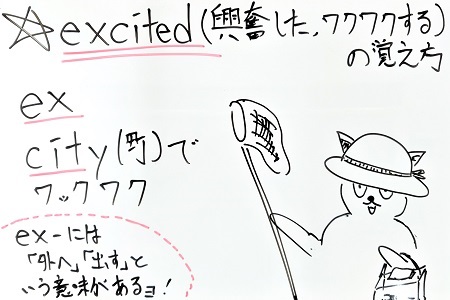 ☆excited(興奮した,ワクワクする)
の覚え方
ex
city(町)で
ワックワク
ex-には
「外へ」「出す」と
いう意味があるヨ!